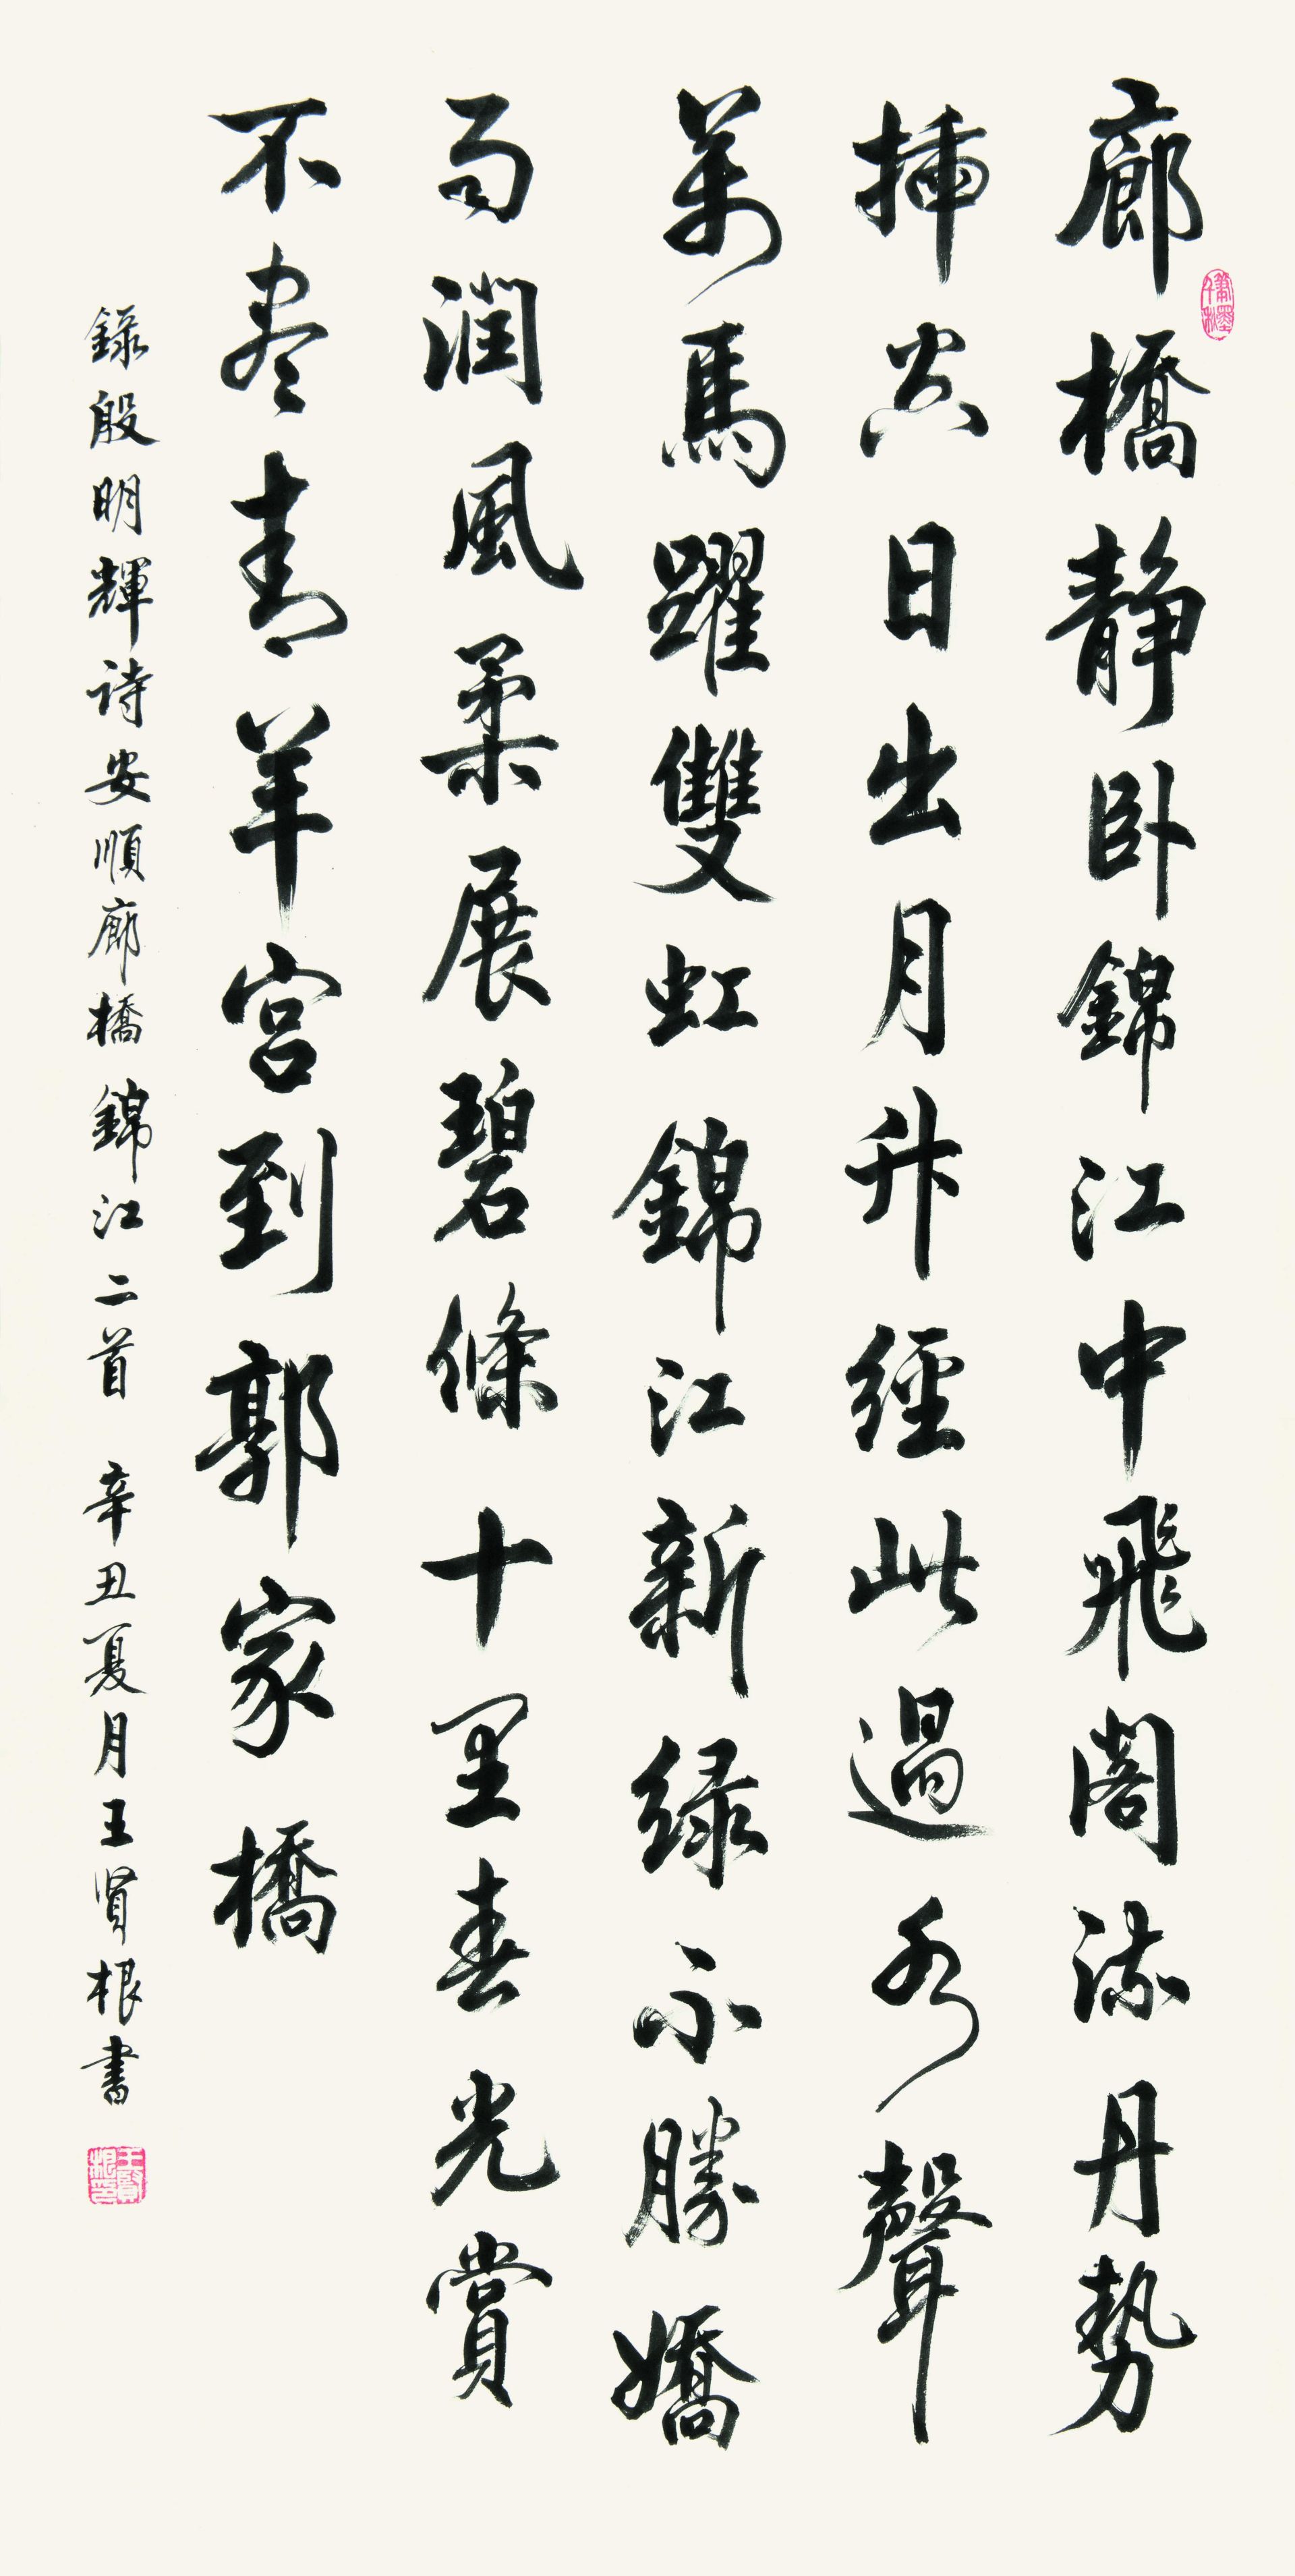 廊橋靜卧錦江中飛閣流丹勢
插空日出月升經此過水聲
萬馬躍雙虹錦江新緑不勝嬌
雨潤風柔展碧條十里春光賞
不盡青羊宮到郭家橋
錄殷明輝诗安順廊橋錦江二首 辛丑夏月王贤根書
王賢根印